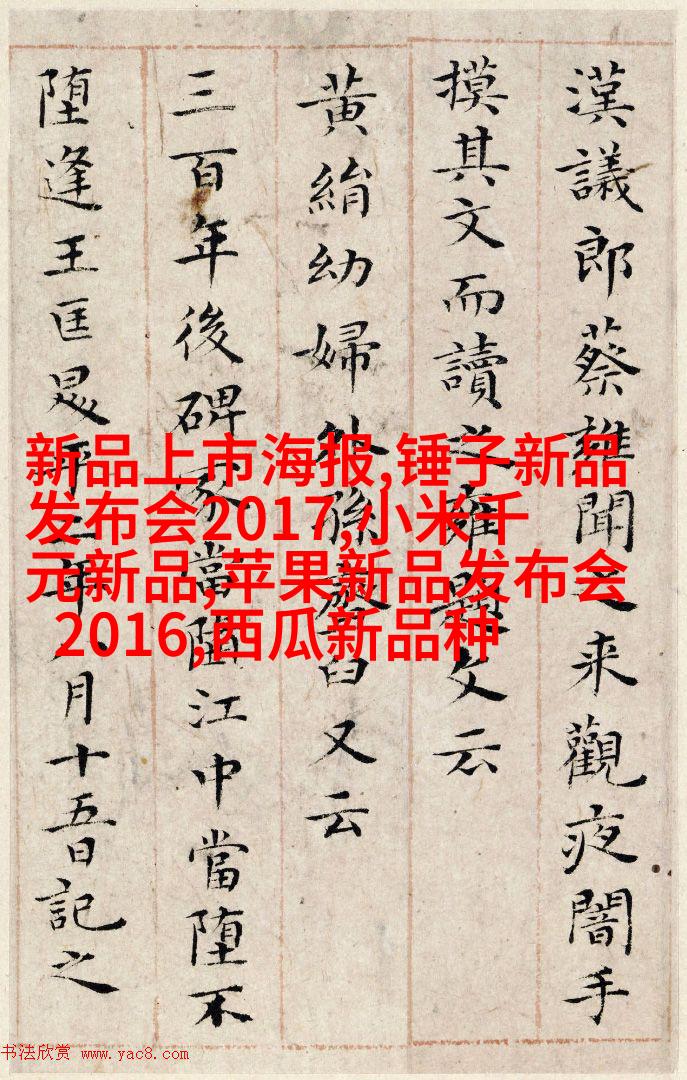 漢議郎蔡雍聞之来觀夜闇手
摸其文而讀之雍題文云
黄絹幼婦外孫臼又云
三百年後碑冢當堕江中當堕不
堕逢王匡昇平二年八月十五日記之
新品上市海报,锤子新品
发布会2017,小米千
元新品,苹果新品发布会
2016,西瓜新品种
书法欣赏 www.yac8.com